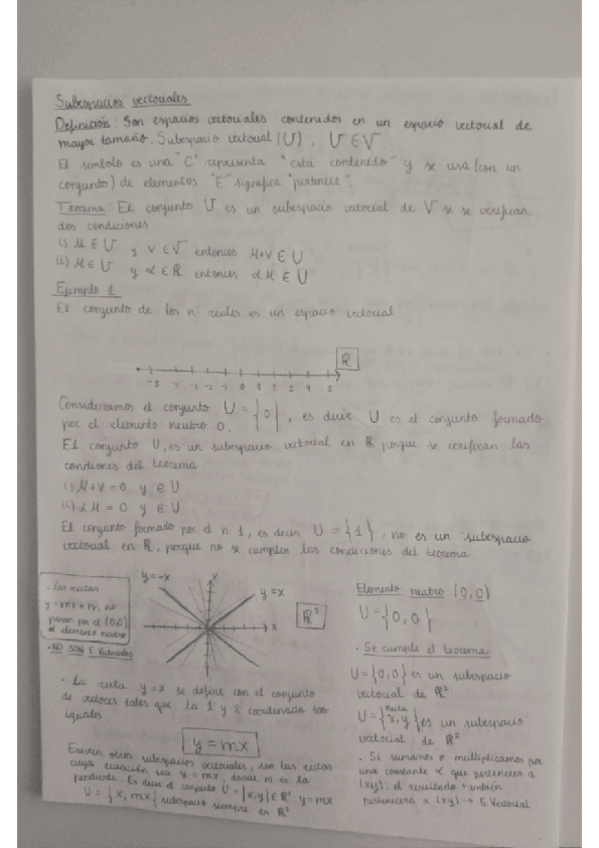 Subespacios vectoriales
Definición: Son espacios vectoriales contenidos en un espacio vectorial de
mayor tamaño. Subespacio vectorial (U), U ∈ V
El símbolo es una "C" representa "está contenido" y se usa (con un
conjunto) de elementos "E" significa "pertenece".
Teorema: El conjunto U es un subespacio vectorial de V si se verifican
dos condiciones
i) μ ∈ U y v ∈ V entonces μ+v ∈ U
ii) μ ∈ U y α ∈ R entonces αμ ∈ U
Ejemplo 1
El conjunto de los nº reales es un espacio vectorial
R
-5 -4 -3 -2 -1 0 1 2 3 4 5
Consideramos el conjunto U = {0}, es decir U es el conjunto formado
por el elemento neutro 0.
El conjunto U, es un subespacio vectorial en R porque se verifican las
condiones del teorema.
i) μ+v = 0 y ∈ U
ii) αμ = 0 y ∈ U
El conjunto formado por el n 1, es decir U = {1}, no es un subespacio
vectorial en R, porque no se cumplen las condiciones del teorema
· Las rectas
y = mx + n, no
pasan por el (0,0)
el elemento neutro
· NO SON E. Vectoriales
y=-x
y
y=x
x
R²
· La recta y=x se define con el conjunto
de vectores tales que la 1 y 2 coordenada son
iguales.
y = mx
Existen otros subespacios vectoriales, son las rectas
cuya ecuación sea y = mx, donde m es la
pendiente. Es decir el conjunto U = {x,y} ∈ R²: y=mx
U = {x, mx} subespacio siempre en R²
Elemento neutro (0,0)
U = {0,0}
· Se cumple el teorema
U = {0,0} es un subespacio
vectorial de R²
Recta
U = {x,y} es un subespacio
vectorial de R²
· Si sumamos o multiplicamos por
una constante α que pertenecen a
(xy), el resultado también
pertenecerá a (xy) → S. Vectorial